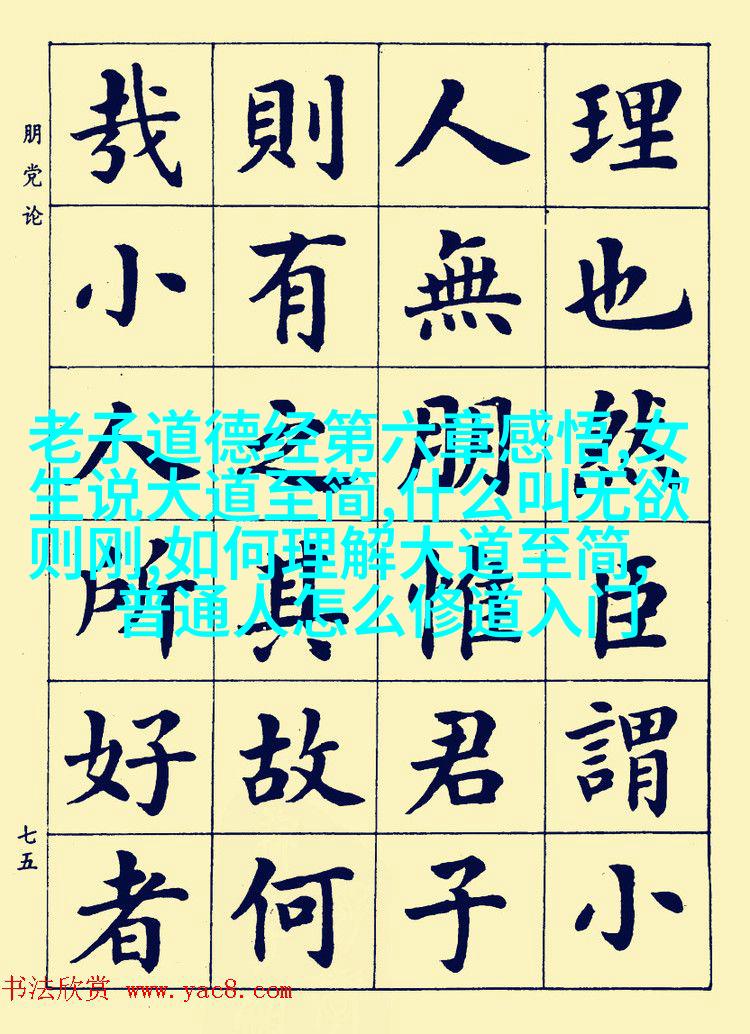 理也然臣謂小
人無朋惟君子
則有之其故何
哉小人所好者
朋党论
七五
老子道德经第六章感悟,女
生说大道至简,什么叫无欲
则刚,如何理解大道至简,
普通人怎么修道入门
书法欣赏 www.yac8.com